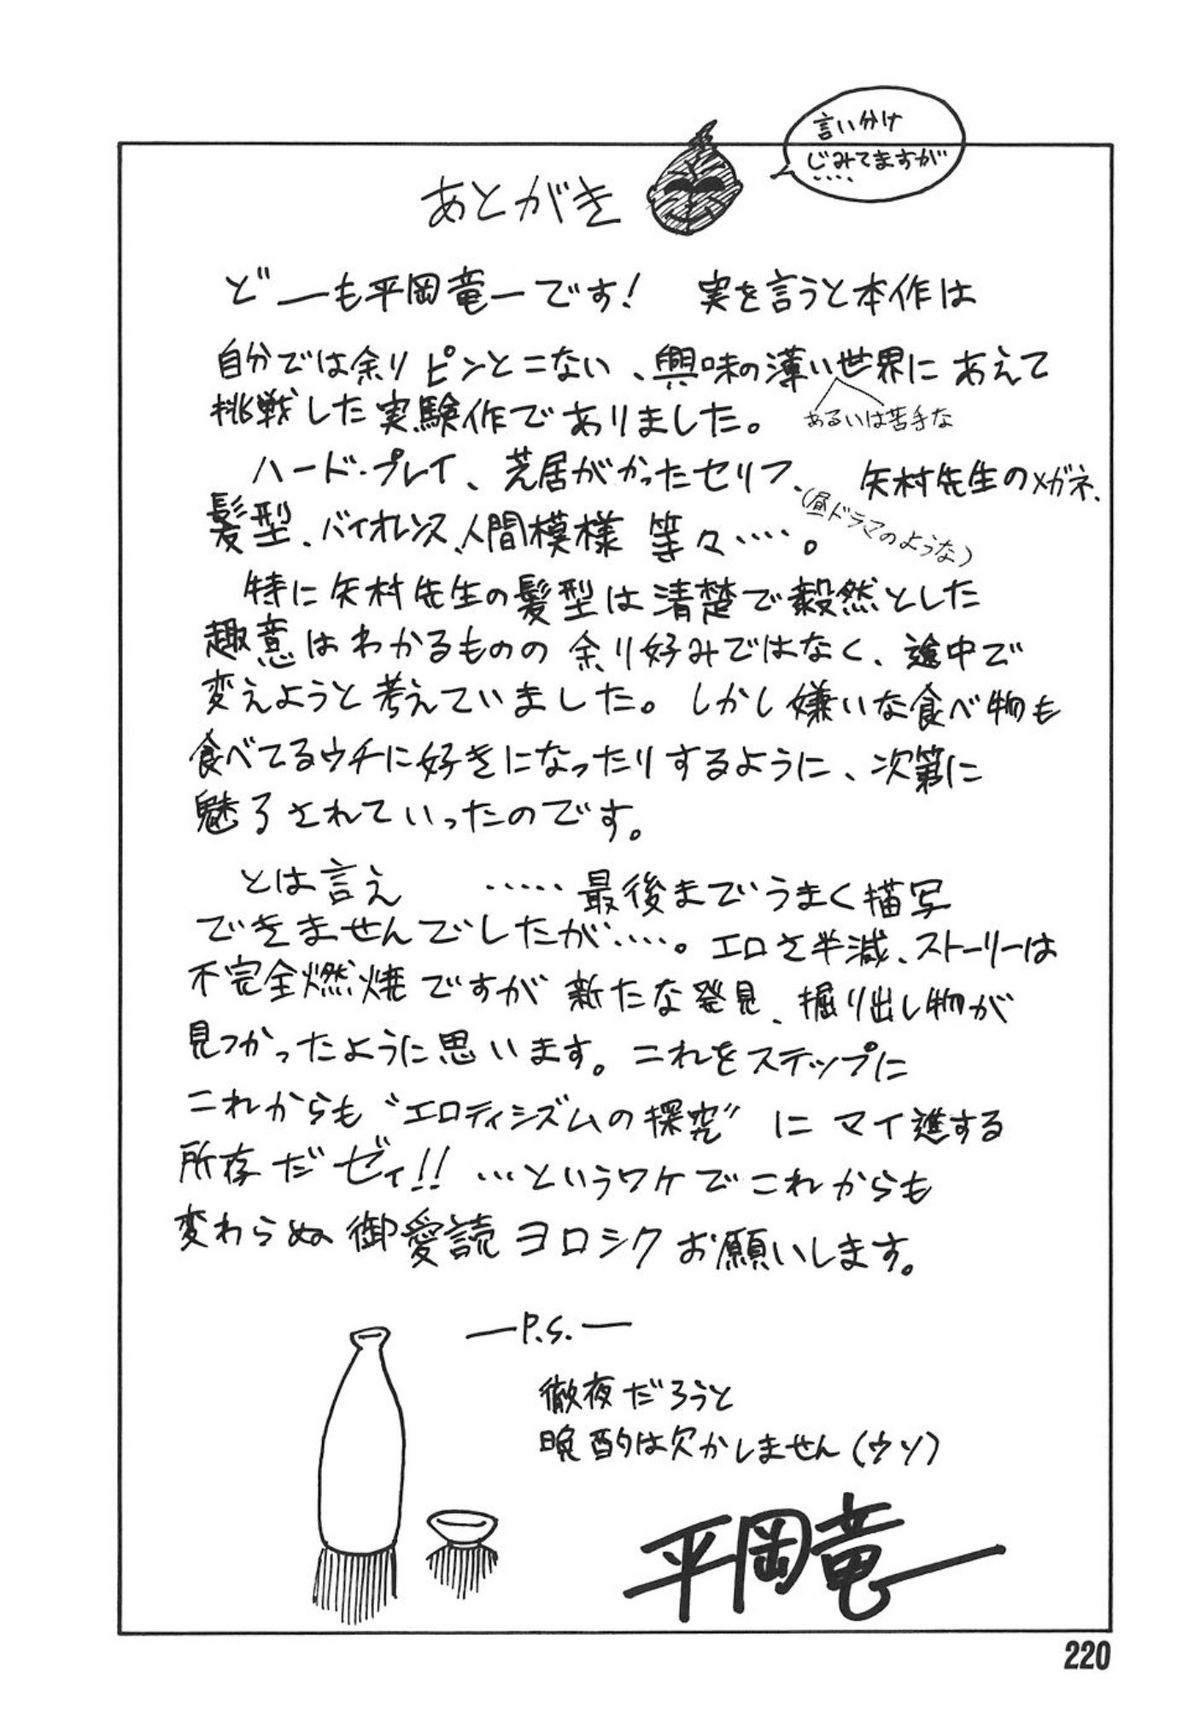 言い分け
じみてますが
あとがき
どーも平岡竜一です! 実を言うと本作は
自分では余りピンとこない、興味の薄い世界にあえて
あるいは苦手な
挑戦した実験作でありました。
ハード・プレイ、芝居がかったセリフ、矢村先生のメガネ、
(昼ドラマのような)
髪型、バイオレンス、人間模様 等々……。
特に矢村先生の髪型は清楚で毅然とした
趣意はわかるものの余り好みではなく、途中で
変えようと考えていました。しかし嫌いな食べ物も
食べてるウチに好きになったりするように、次第に
魅るされていったのです。
とは言え ……最後までうまく描写
できませんでしたが……。エロさ半減、ストーリーは
不完全燃焼ですが新たな発見、掘り出し物が
見つかったように思います。これをステップに
これからも“エロティシズムの探究”にマイ進する
所存だゼィ!! …というワケでこれからも
変わらぬ御愛読ヨロシクお願いします。
―P.S.―
徹夜だろうと
晩酌は欠かしません(ウソ)
平岡竜一
220